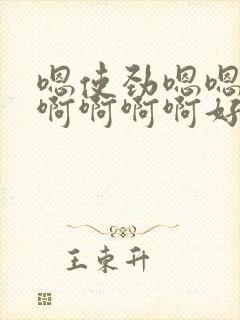 嗯使劲嗯嗯
啊啊啊啊好
王束升